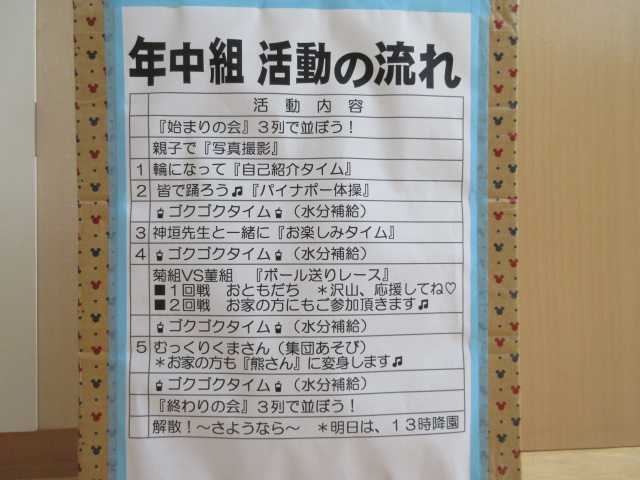 年中組 活動の流れ
活動内容
『始まりの会』３列で並ぼう！
親子で『写真撮影』
1 輪になって『自己紹介タイム』
2 皆で踊ろう♫『パイナポー体操』
ゴクゴクタイム（水分補給）
3 神垣先生と一緒に『お楽しみタイム』
4 ゴクゴクタイム（水分補給）
菊組VS菫組 『ボール送りレース』
■１回戦 おともだち ＊沢山、応援してね♡
■２回戦 お家の方にもご参加頂きます♫
ゴクゴクタイム（水分補給）
5 むっくりくまさん（集団あそび）
＊お家の方も『熊さん』に変身します♫
ゴクゴクタイム（水分補給）
『終わりの会』３列で並ぼう！
解散！～さようなら～ ＊明日は、１３時降園